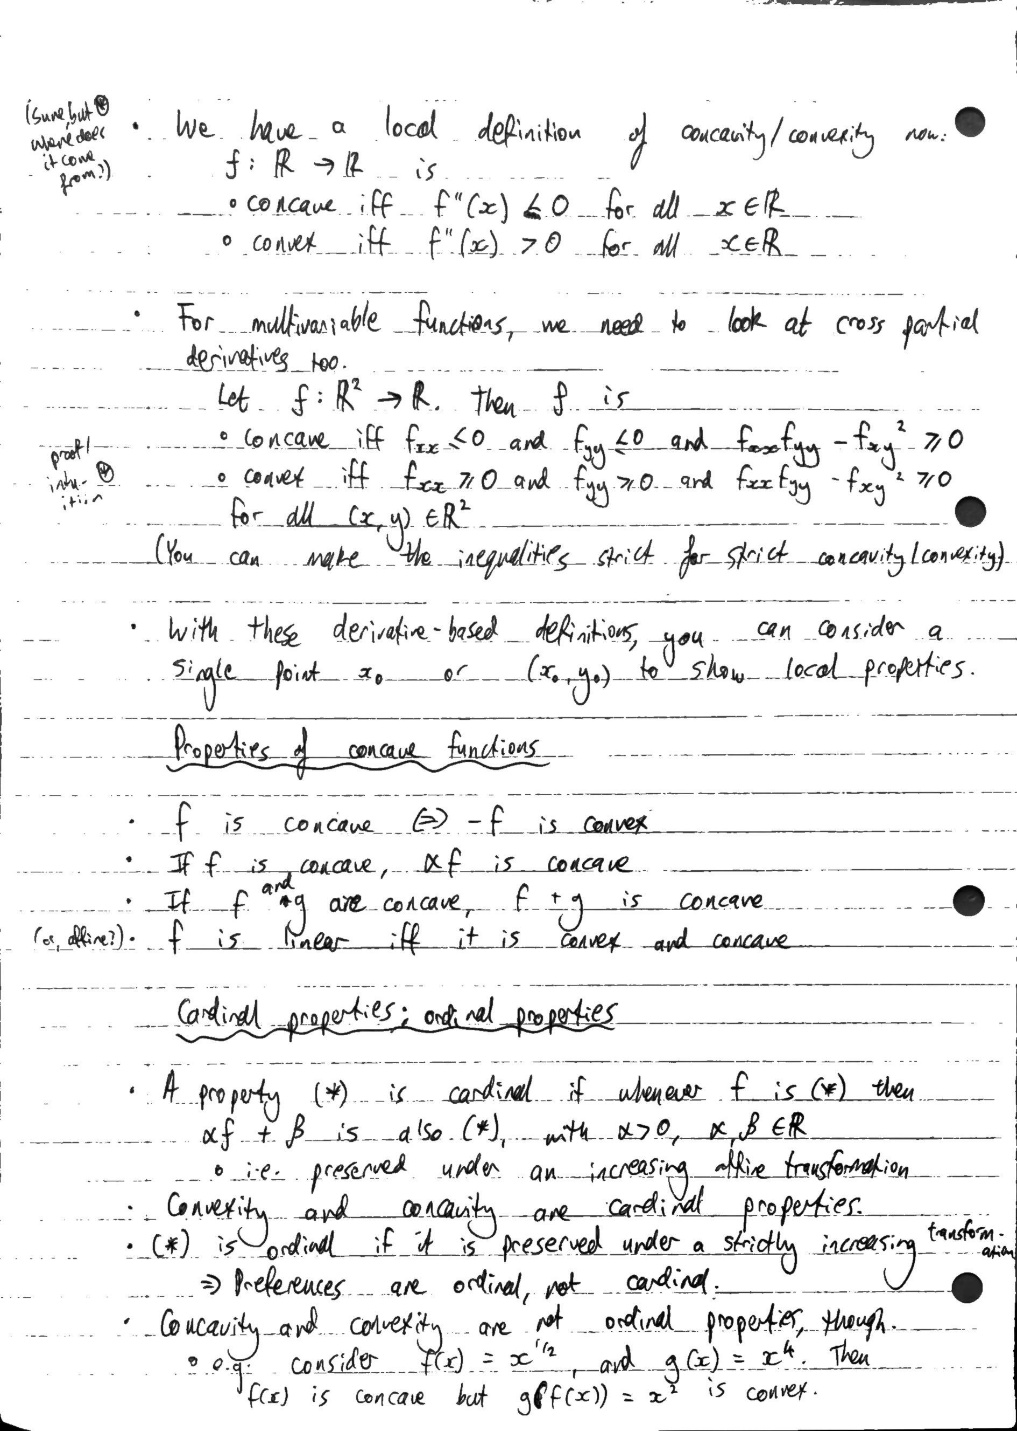 (sure, but
where does
it come
from?)
• We have a local definition of concavity/convexity now:
f : ℝ → ℝ is
∘ concave iff f''(x) ≤ 0 for all x ∈ ℝ
∘ convex iff f''(x) > 0 for all x ∈ ℝ
• For multivariable functions, we need to look at cross partial
derivatives too.
Let f : ℝ² → ℝ. Then f is
proof/
intu-
ition
∘ concave iff fxx ≤ 0 and fyy ≤ 0 and fxxfyy - fxy² ≥ 0
∘ convex iff fxx ≥ 0 and fyy ≥ 0 and fxxfyy - fxy² ≥ 0
for all (x, y) ∈ ℝ²
(You can make the inequalities strict for strict concavity/convexity)
• With these derivative-based definitions, you can consider a
single point x₀ or (x₀, y₀) to show local properties.
Properties of concave functions
• f is concave ⇔ -f is convex
• If f is concave, αf is concave
• If f and g are concave, f + g is concave
(or, affine?) • f is linear iff it is convex and concave
Cardinal properties; ordinal properties
• A property (*) is cardinal if whenever f is (*) then
αf + β is also (*), with α>0, α, β ∈ ℝ
∘ i.e. preserved under an increasing affine transformation
• Convexity and concavity are cardinal properties.
• (*) is ordinal if it is preserved under a strictly increasing transform-
ation
⇒ Preferences are ordinal, not cardinal.
• Concavity and convexity are not ordinal properties, though.
∘ e.g. consider f(x) = x^1/2, and g(x) = x⁴. Then
f(x) is concave but g(f(x)) = x² is convex.